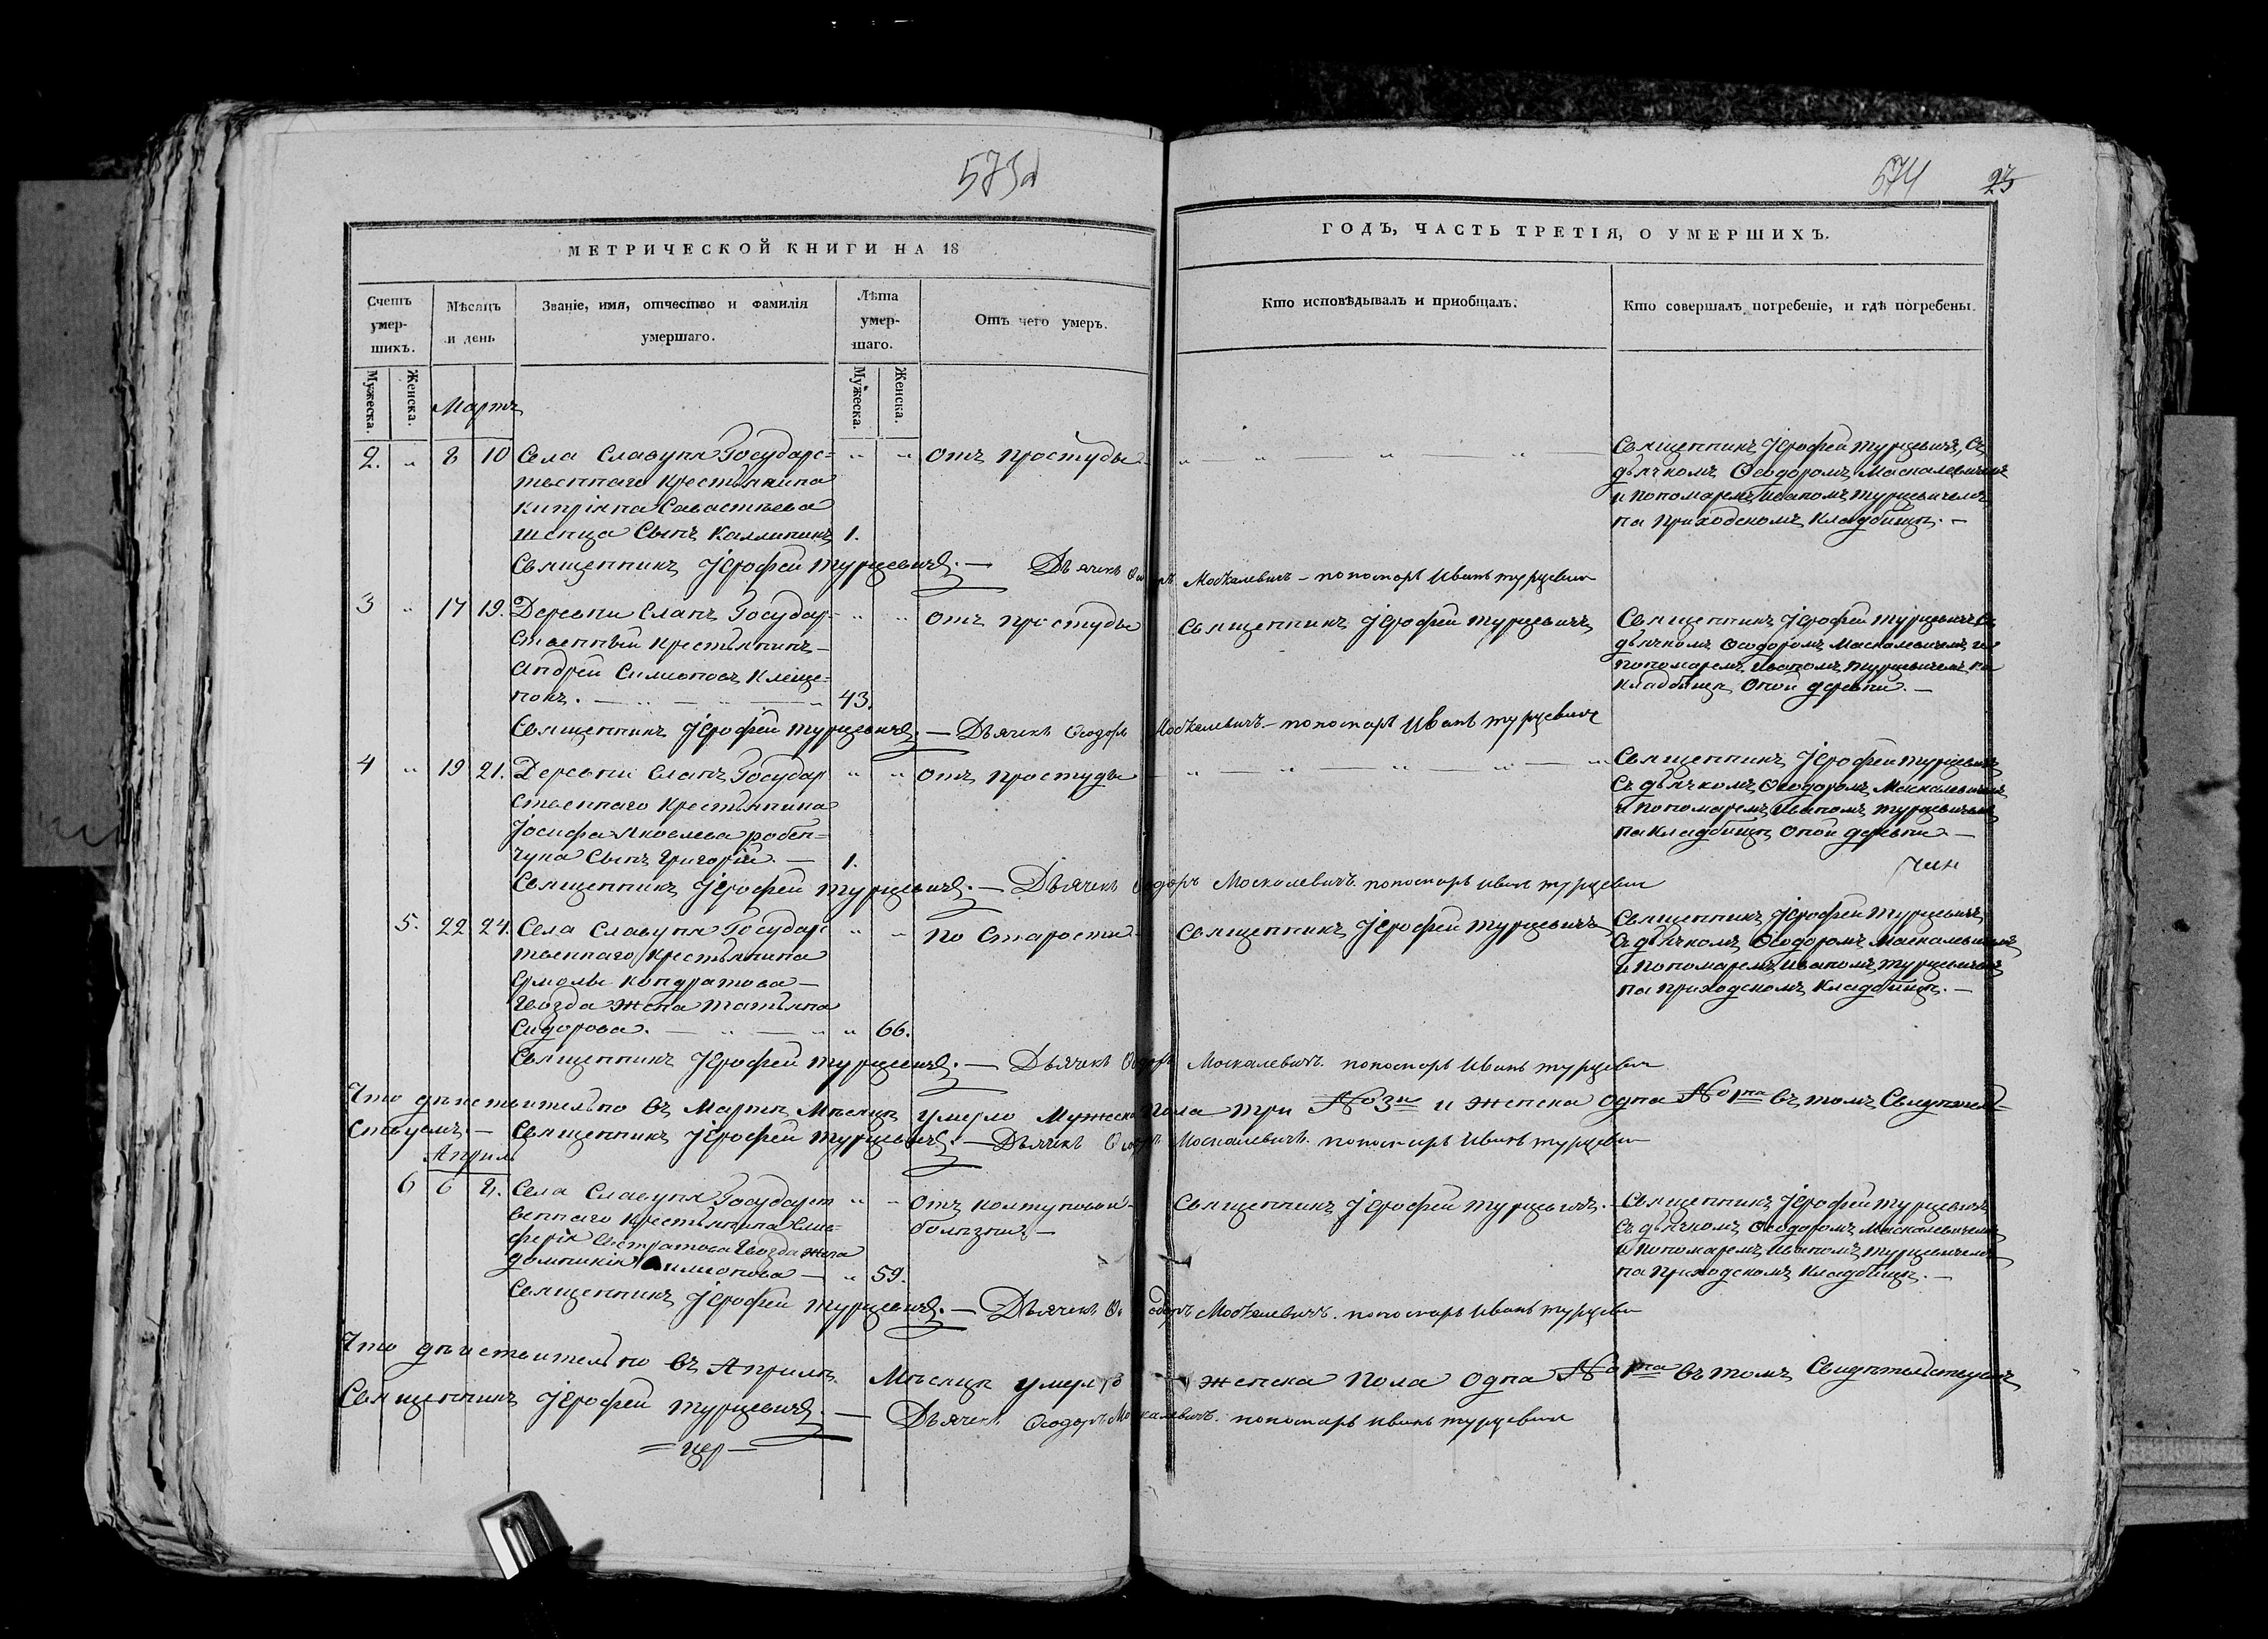 573об
574 23
МЕТРИЧЕСКОЙ КНИГИ НА 18
ГОДЪ, ЧАСТЬ ТРЕТІЯ, О УМЕРШИХЪ.
Счетъ умер-шихъ.
Мѣсяцъ и день
Званіе, имя, отчество и фамилія умершаго.
Лѣта умер-шаго.
Отъ чего умеръ.
Кто исповѣдывалъ и приобщалъ.
Кто совершалъ погребеніе, и гдѣ погребены.
Мужеска. Женска.
Мужеска. Женска.
Мартъ
2. „ 8 10 Села Славуня Государс= „ „ отъ простуды
твеннаго крестьянина
Кипріяна Савастьева
сынъ Каллиникъ 1.
Священникъ Іерофей Турцевичъ, съ
дьячкомъ Ѳеодоромъ Москалевичемъ
и пономаремъ Иваномъ Турцевичемъ
на приходскомъ кладбищѣ. —
Священникъ Іерофей Турцевичъ. — Дьячекъ Ѳеодоръ Москалевичъ — пономарь Иванъ Турцевич
3 „ 17 19. Деревни Славъ Государ- „ „ отъ простуды
ственный крестьянинъ —
Андрей Симионовъ Клеще=
нокъ. — „ — „ — „ 43.
Священникъ Іерофей Турцевичъ
Священникъ Іерофей Турцевичъ съ
дьячкомъ Ѳеодоромъ Москалевичемъ и
пономаремъ Иваномъ Турцевичемъ на
кладбищѣ оной деревни. —
Священникъ Іерофей Турцевичъ. — Дьячекъ Ѳеодоръ Москалевичъ — пономарь Иванъ Турцевич
4 „ 19 21. Деревни Славъ Государ „ „ отъ простуды
ственнаго крестьянина
Іосифа Яковлева
сынъ Григорій. — 1.
Священникъ Іерофей Турцевичъ
съ дьячкомъ Ѳеодоромъ Москалевичемъ
и пономаремъ Иваномъ Турцевичемъ
на кладбищѣ оной деревни —
Священникъ Іерофей Турцевичъ. — Дьячекъ Ѳеодоръ Москалевичъ. пономарь Иванъ Турцевич
5. 22 24. Села Славуня Государс „ „ по старости
твеннаго крестьянина
Ермолы Кондратова —
Гвозда жена Татьяна
Сидорова. — „ — „ „ 66.
Священникъ Іерофей Турцевичъ
Священникъ Іерофей Турцевичъ
съ дьячкомъ Ѳеодоромъ Москалевичемъ
и пономаремъ Иваномъ Турцевичемъ
на приходскомъ кладбищѣ. —
Священникъ Іерофей Турцевичъ. — Дьячекъ Ѳеодоръ Москалевичъ. пономарь Иванъ Турцевич
Что дѣйствительно въ Мартѣ Мѣсяцѣ умерло Мужеска пола три №3и и женска одна №1на въ томъ свидѣтель-
ствуемъ. — Священникъ Іерофей Турцевичъ. — Дьячекъ Ѳеодоръ Москалевичъ. пономарь Иванъ Турцевич
Априль
6 6 8. Села Славуня Государст „ „ отъ
веннаго крестьянина Елев-
ферія Евстратова Гвозда жена
Домникія Симионова — „ 59.
болѣзни. —
Священникъ Іерофей Турцевичъ. —
Священникъ Іерофей Турцевичъ
съ дьячкомъ Ѳеодоромъ Москалевичемъ
и пономаремъ Иваномъ Турцевичемъ
на приходскомъ кладбищѣ. —
Священникъ Іерофей Турцевичъ. — Дьячекъ Ѳеодоръ Москалевичъ. пономарь Иванъ Турцевич
Что дѣйствительно въ Априлѣ Мѣсяцѣ умерло женска пола одна №1на въ томъ свидѣтельствуемъ
Священникъ Іерофей Турцевичъ. — Дьячекъ Ѳеодоръ Москалевичъ. пономарь Иванъ Турцевич